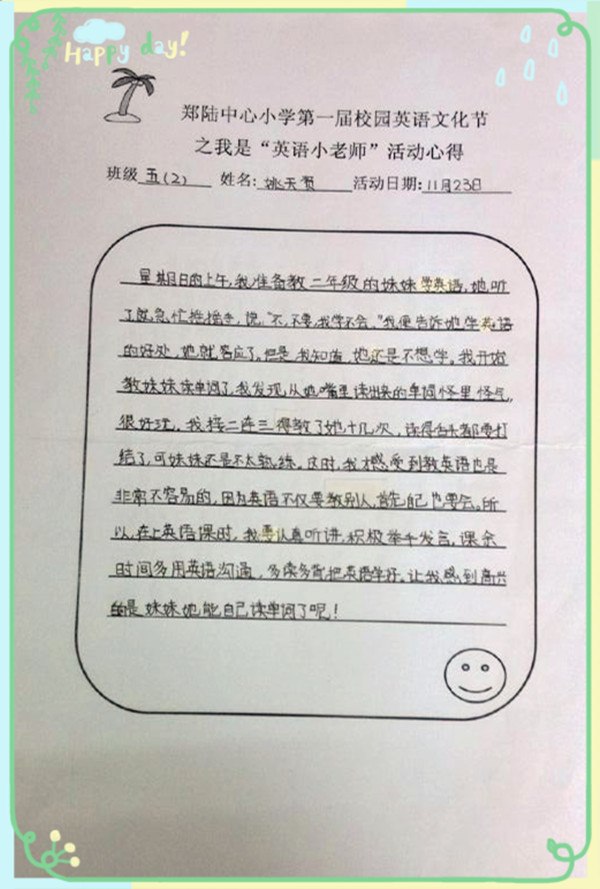 Happy day!
郑陆中心小学第一届校园英语文化节
之我是“英语小老师”活动心得
班级 五(2) 姓名: 姚天贤 活动日期: 11月23日
星期日的上午,我准备教二年级的妹妹学英语,她听
了就急忙挫摇手,说,“不,不要,我学不会。”我便告诉她学英语
的好处,她就答应了。但是我知道,她还是不想学。我开始
教妹妹读单词了,我发现,从她嘴里读出来的单词怪里怪气,
很好玩。我接二连三得教了她十几次,读得舌头都要打
结了,可妹妹还是不太熟练。这时,我才感受到教英语也是
非常不容易的,因为英语不仅要教别人,首先自己也要会。所
以,在上英语课时,我要认真听讲,积极举手发言,课余
时间多用英语沟通,多读多背,把英语学好。让我感到高兴
的是妹妹她能自己读单词了呢!